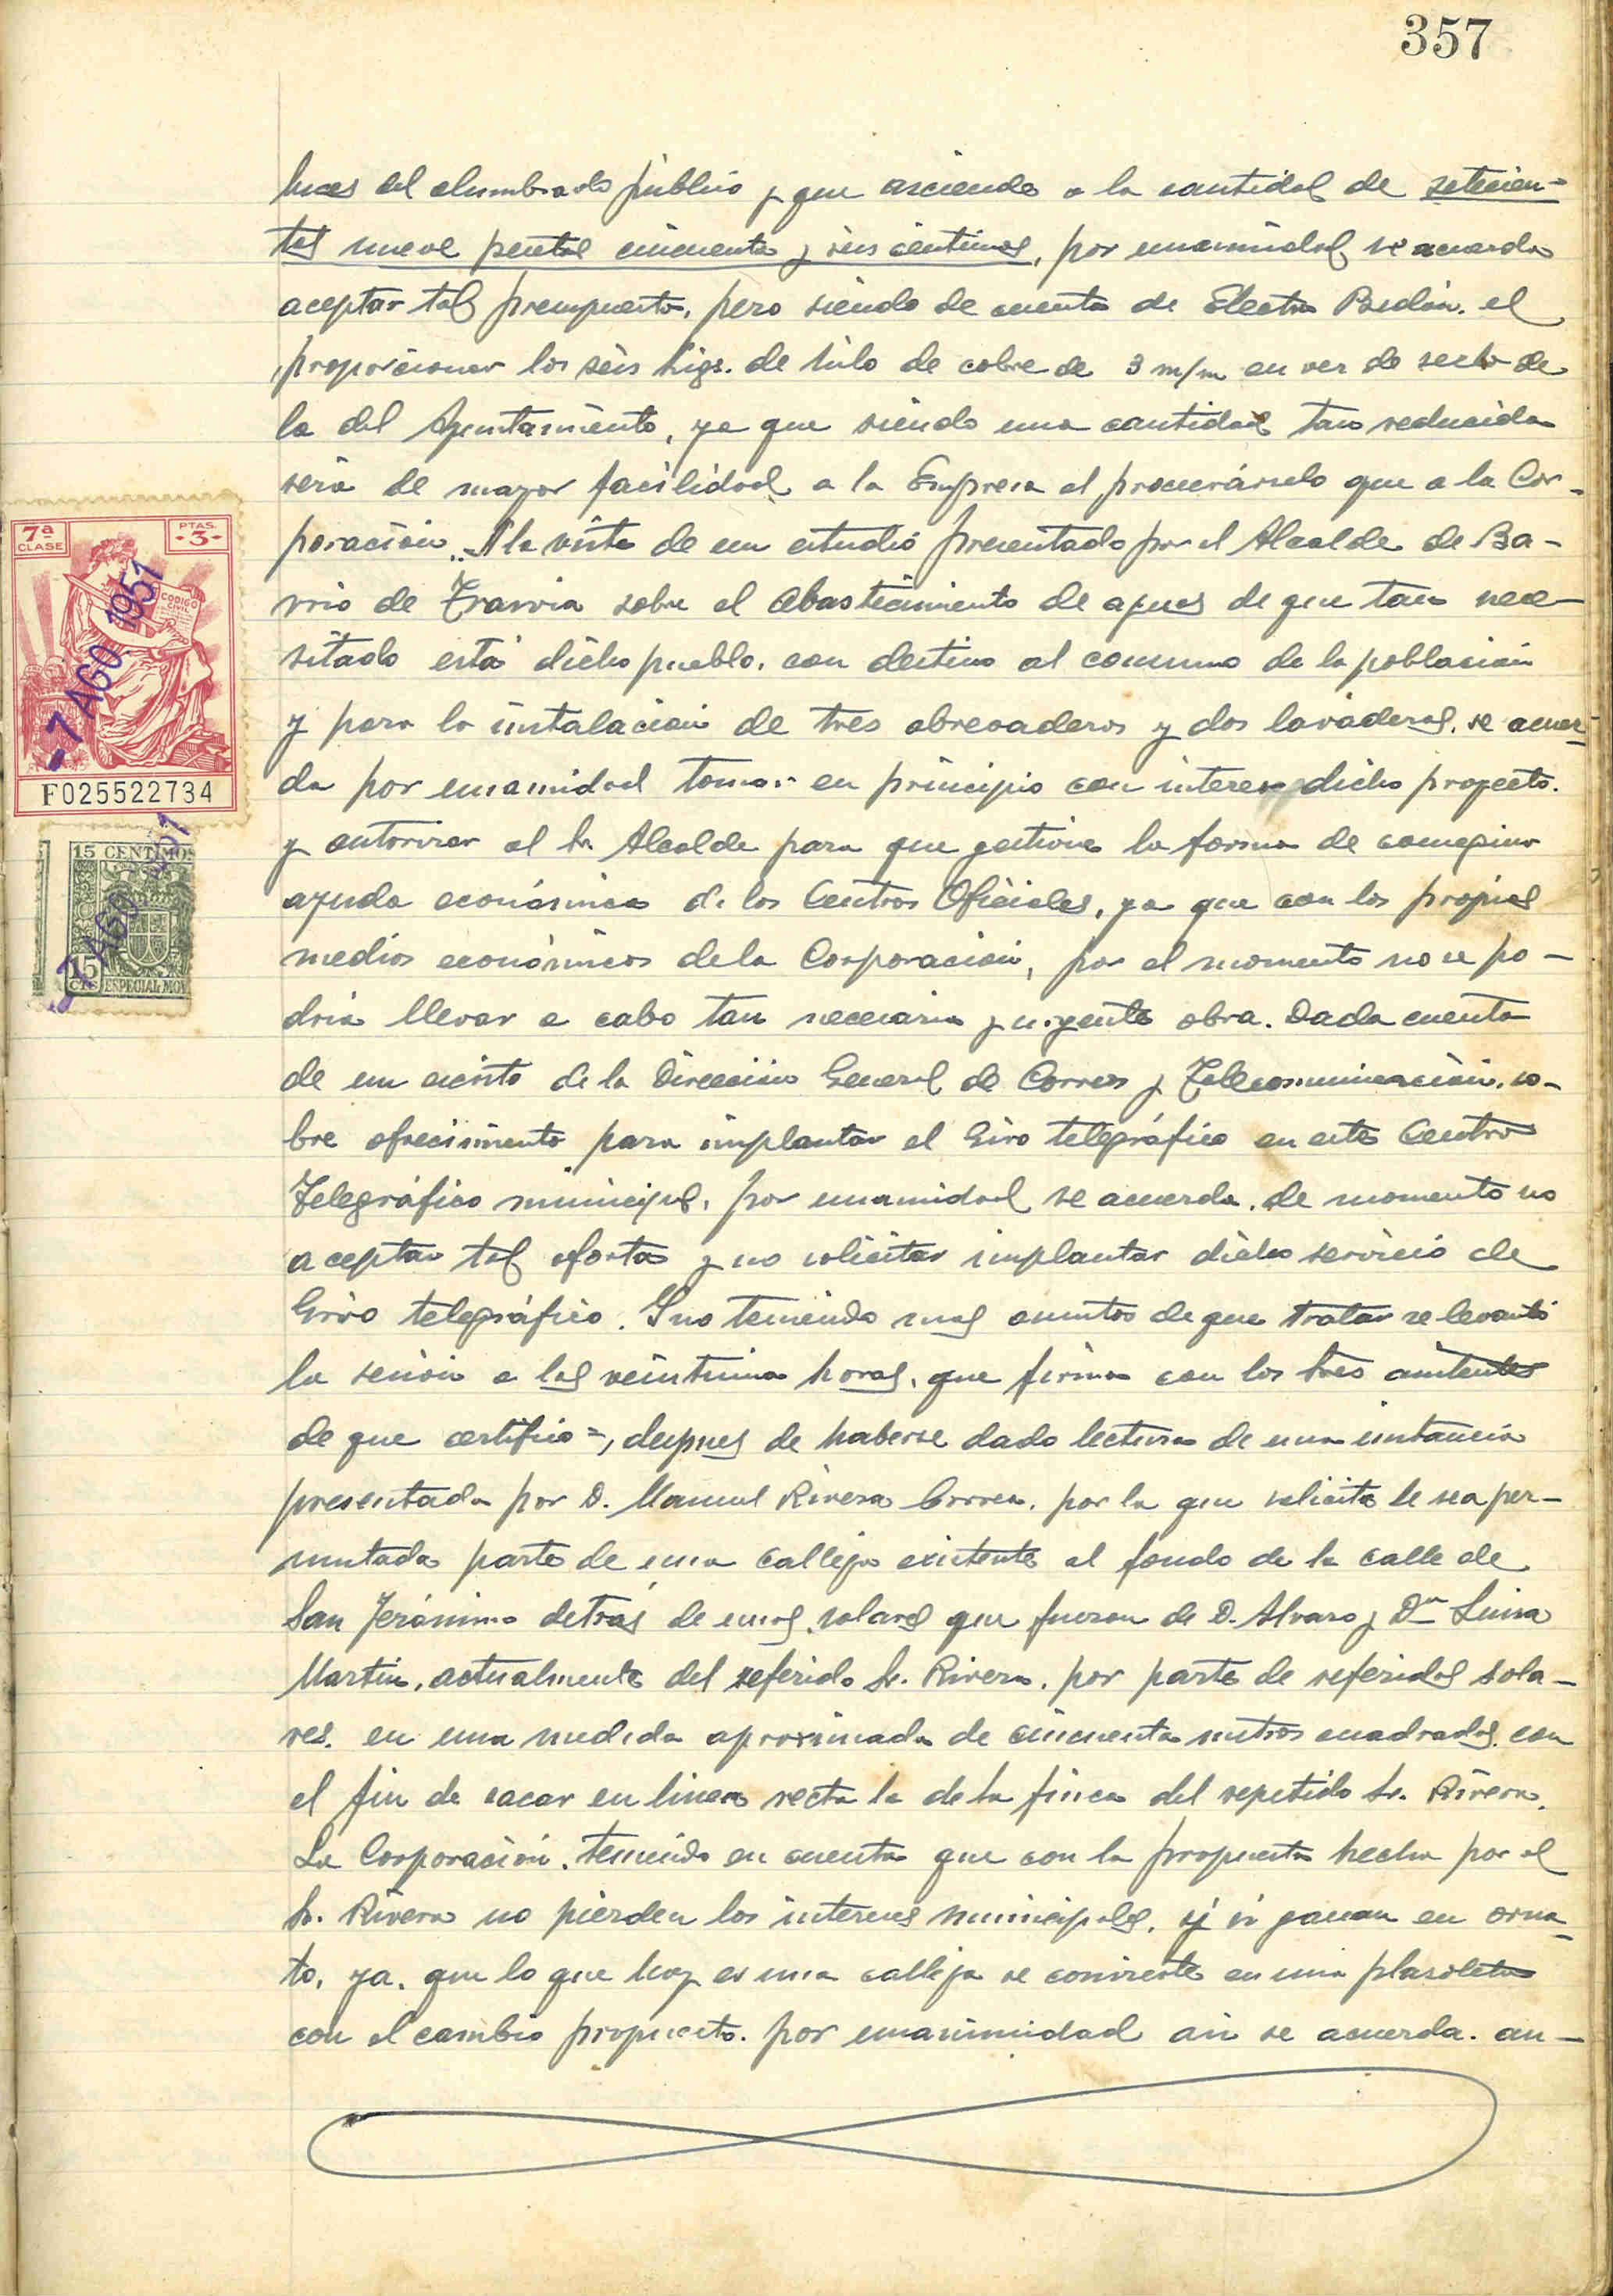 357
luces del alumbrado público y que asciende a la cantidad de setecien-
tas nueve pesetas cincuenta y seis céntimos, por unanimidad se acuerda
aceptar tal presupuesto, pero siendo de cuenta de Electra Bedón, el
proporcionar los seis kigs. de hilo de cobre de 3 m/m en vez de serlo de
la del Ayuntamiento, ya que siendo una cantidad tan reducida
será de mayor facilidad a la Empresa el procurárselo que a la Cor-
poración. A la vista de un estudio presentado por el Alcalde de Ba-
rrio de sobre el abastecimiento de aguas de que tan nece-
sitado está dicho pueblo, con destino al consumo de la población
y para la instalación de tres abrevaderos y dos lavaderos, se acuer-
da por unanimidad tomar en principio con interes dicho proyecto.
y autorizar al Sr Alcalde para que gestione la forma de conseguir
ayuda económica de los Centros Oficiales, ya que con los propios
medios económicos de la Corporación, por el momento no se po-
dria llevar a cabo tan necesaria y urgente obra. Dada cuenta
de un escrito de la Dirección General de Correos y Telecomunicación, so-
bre ofrecimiento para implantar el Giro telegráfico en este Centro
Telegráfico municipal, por unanimidad se acuerda, de momento no
aceptar tal oferta y no solicitar implantar dicho servicio de
Giro telegráfico. Y no teniendo mas asuntos de que tratar se levantó
la sesión a las veintiuna horas, que firma con los tres asistentes
de que certifico=, despues de haberse dado lectura de una instancia
presentada por D. Manuel Rivera Correa, por la que solicita le sea per-
mutada parte de una calleja existente al fondo de la calle de
San Jerónimo detrás de unos solares que fueron de D. Alvaro y Dª Luisa
Martin, actualmente del referido Sr. Rivera, por parte de referidos sola-
res, en una medida aproximada de cincuenta metros cuadrados, con
el fin de sacar en linea recta la de la finca del repetido Sr. Rivera.
La Corporación, teniendo en cuenta que con la propuesta hecha por el
Sr. Rivera no pierden los intereses municipales, y si ganan en orna-
to, ya, que lo que hoy es una calleja se convierte en una plazoleta
con el cambio propuesto, por unanimidad asi se acuerda. an-
7ª CLASE
PTAS. -3-
CODIGO CIVIL
-7 AGO. 1951
F025522734
15 CENTIMOS
-7 AGO 1951
15 CTS ESPECIAL MOV